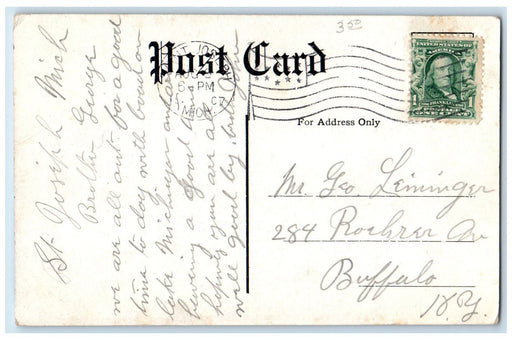 3 50
Post Card
ST. JOSEPH
5 - PM
MICH.
UNITED STATES OF AMERICA
FRANKLIN
POSTAGE
ONE CENT
For Address Only
Mr. Geo Leininger
284 Roehrer Av
Buffalo
N.Y.
St Joseph Mich
Brother George
we are all out for a good
time to day with boat on
lake Michigan and
having a good time
hoping you are all
well good by